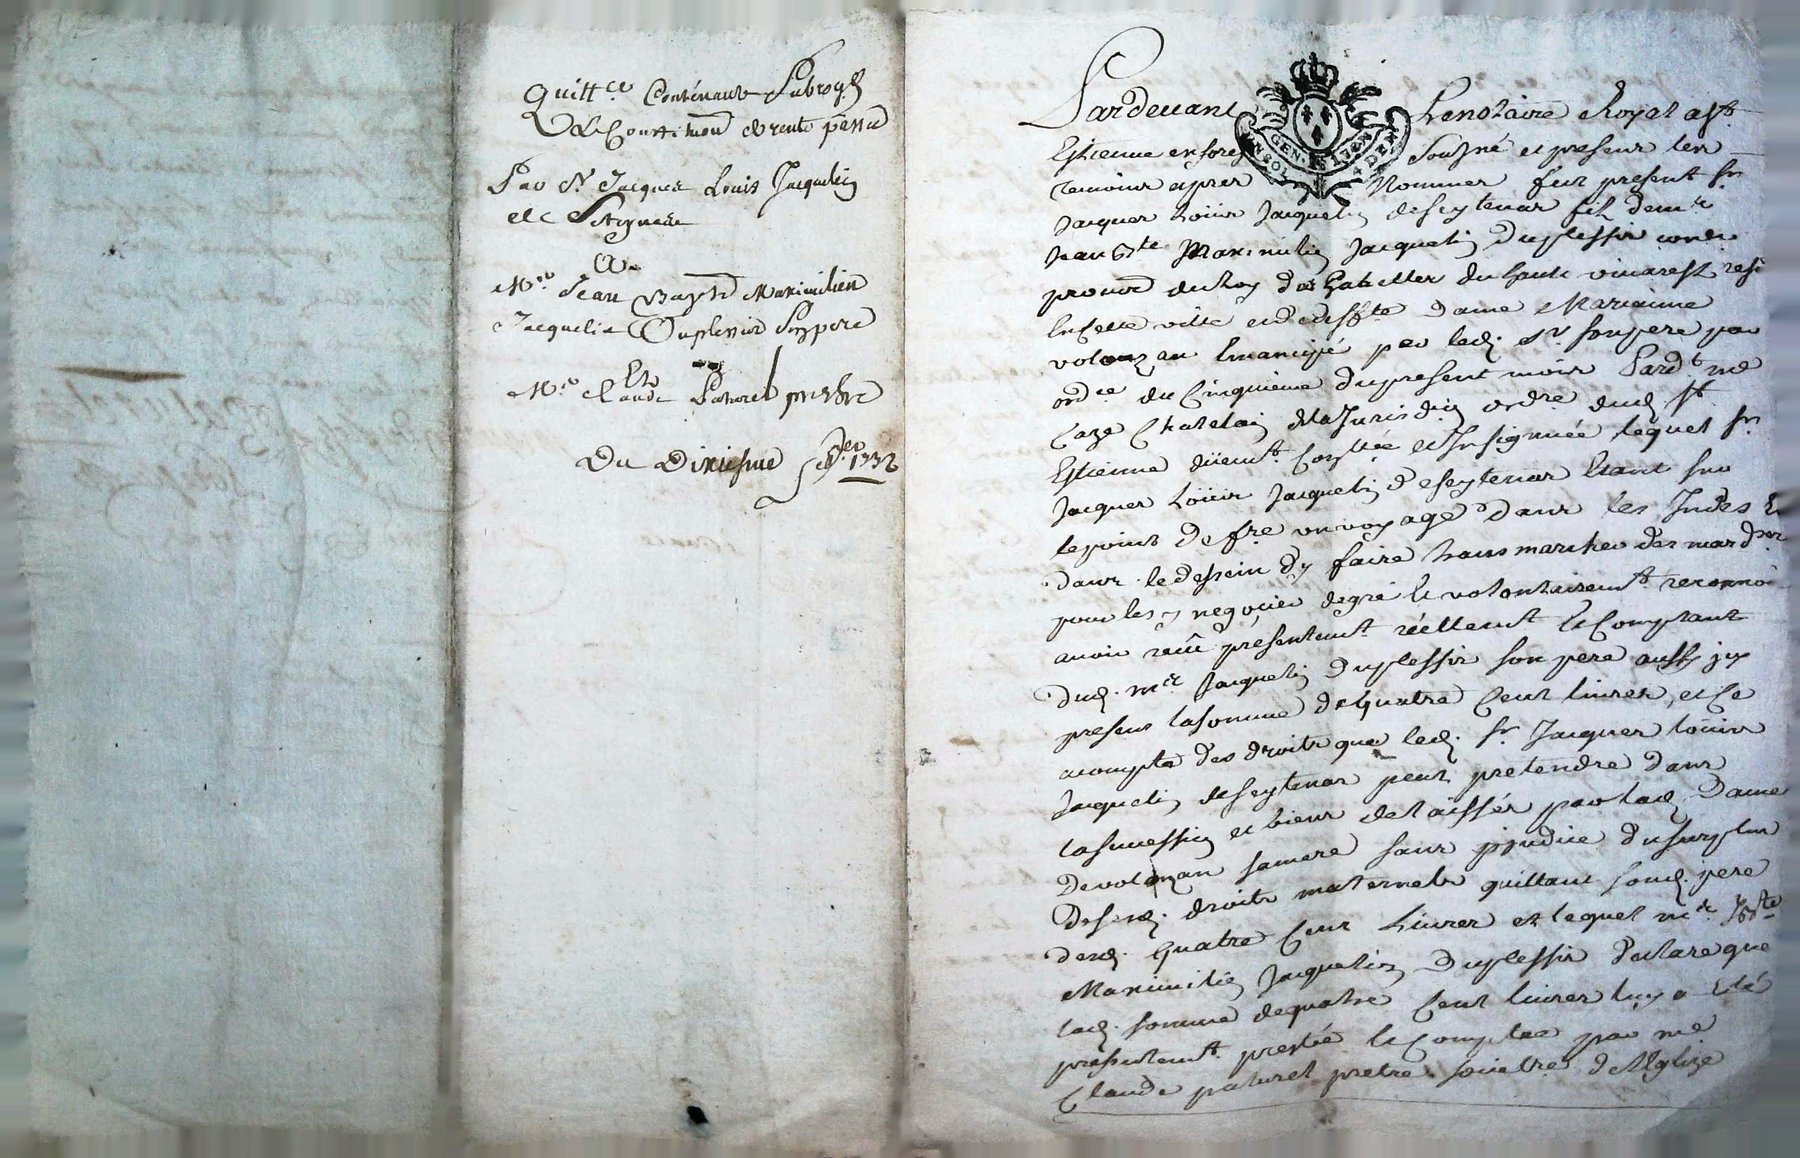 Quitt.ce Contenant Subrog.on
& Constition de rente passée
Par Sr. Jacques Louis Jacquelin
de
A
Mre. Jean Bapt. Maximilien
Jacquelin Duplessis Son pere
Et
Mre. Claude Paturel prestre
Du Dixiesme 1732
Pardevant Le notaire Royal a St.
Estienne en forez Sousigné et presens les
temoins apres Nommes fut present sr
Jacques Loüis Jacquelin deseytenas fils de mr
Jean Bte Maximilien Jacquelin Duplessis
procur du Roy des Gabelles du haut vivarest
En Cette ville et de deffte Dame Marianne
volozan Emancipé par led. Sr son pere par
ordce du Cinquieme du present mois Pardt me
Caze Chatelain de la Jurisdion ordre dud. St
Estienne düemt. et Insignuée lequel sr
Jacques Loüis Jacquelin deseytenas Etant sur
le point de fre un voyage Dans les Indes
dans le dessein dy faire
pour les y negocier de gré Et volontairemt
avoir reçû presentemt. réellemt Et Comptant
dud. mre Jacquelin Duplessis son pere aussy
present la somme de quatre Cent livres, et Ce
acompte des droits que led. sr Jacques Loüis
Jacquelin deseytenas peut pretendre dans
la succession et biens delaissés par lad. Dame
De volozan sa mere sans prjudice du surplus
De sesd. droits maternels quittant sond. pere
desd. quatre Cent Livres et lequel mre J. Bte
Maximilien Jacquelin Duplessis declare que
lad. somme de quatre Cent livres luy a Eté
presentemt. prestée Et Comptée par me
Claude paturel pretre de L'Eglize
GEN